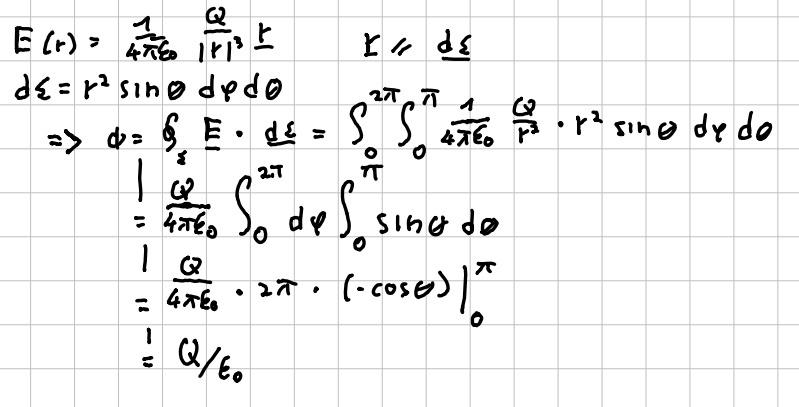 E(r) = 1/(4πε₀) Q/|r|³ r̲    r̲ ∥ dΣ̲
dΣ = r² sinθ dφ dθ
=> Φ = ∮_Σ E̲ · dΣ̲ = ∫₀^{2π} ∫₀^{π} 1/(4πε₀) Q/r³ · r² sinθ dφ dθ
= Q/(4πε₀) ∫₀^{2π} dφ ∫₀^{π} sinθ dθ
= Q/(4πε₀) · 2π · (-cosθ) |₀^{π}
= Q/ε₀